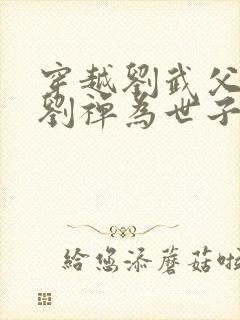 穿越劉武父
劉禪為世子
給您添蘑菇啦